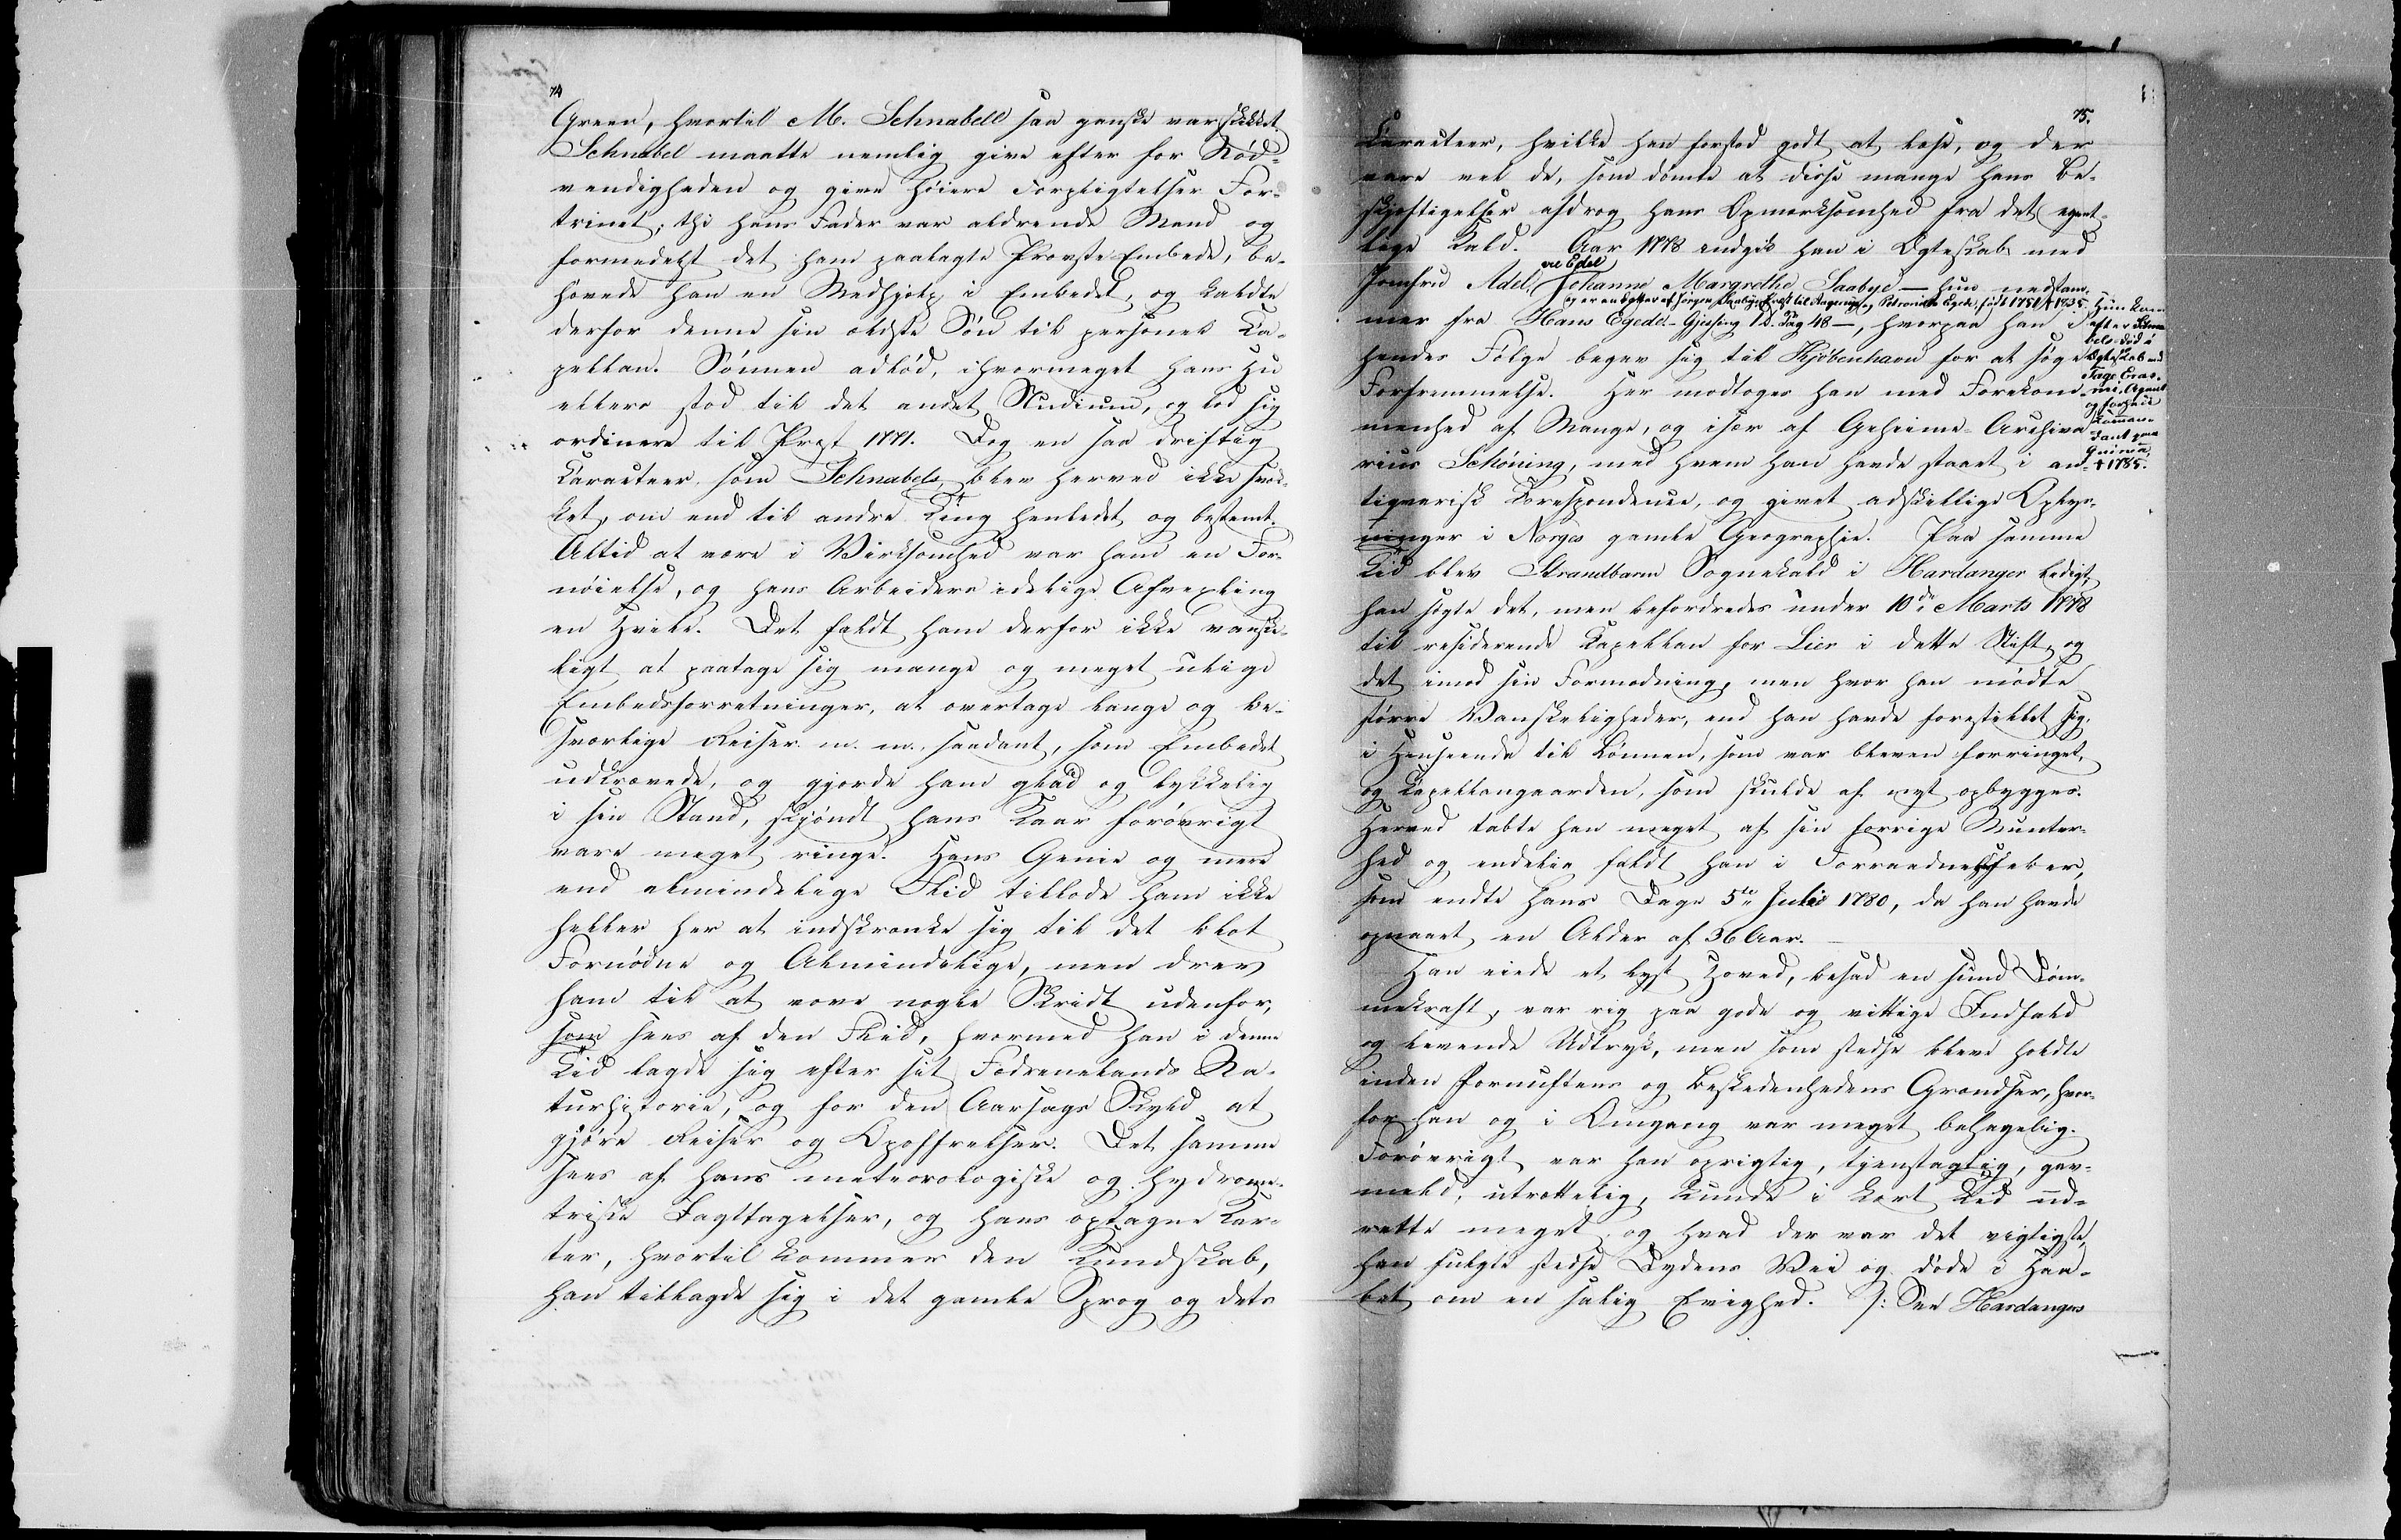 74
Green, hvortil M. Schnabell saa ganske var skikket.
Schnabel maatte nemlig give efter for Nød-
vendigheden og give høiere Forpligtelser For-
trinet; thi hans Fader var aldrende Mand og
formedelst det ham paalagte Provste Embede, be-
høvede han en Medhjelp i Embedet, og kaldte
derfor denne sin ældste Søn til personel Ca-
pellan. Sønnen adlød, ihvormeget hans Hu
ellers stod til det andet Studium, og lod sig
ordinere til Præst 1771. Dog en saa driftig
Caracteer som Schnabels, blev herved ikke svæk-
ket, om end til andre Ting henledet og bestemt.
Altid at være i Virksomhed var ham en For-
nøielse, og hans Arbeiders idelige Afvexling
en Hvile. Det faldt ham derfor ikke vanske-
ligt at paatage sig mange og meget ulige
Embedsforretninger, at overtage lange og be-
sværlige Reiser m. m. saadant, som Embedet
udkrævede, og gjorde ham glad og lykkelig
i sin Stand, skjøndt hans Kaar forøvrigt
vare meget ringe. Hans Genie og mere
end almindelige Flid tillode ham ikke
heller her at indskrænke sig til det blot
Fornødne og Almindelige, men drev
ham til at vove nogle Skridt udenfor,
som sees af den Flid, hvormed han i denne
Tid lagde sig efter sit Fødrenelands Na-
turhistorie, og for den Aarsags Skyld at
gjøre Reiser og Opoffrelser. Det samme
sees af hans meteorologiske og hydrome-
triske Iagttagelser, og hans optagne Kar-
ter, hvortil kommer den Kundskab,
han tillagde sig i det gamle Sprog og dets
75.
Caracteer, hvilke han forstod godt at læse, og der
vare vel de, som dømte at disse mange hans Be-
skjæftigelser afdrog hans Opmærksomhed fra det egent-
lige Kald. Aar 1778 indgik han i Ægteskab med
vel Edel
Jomfru Adel Johanne Margrethe Saabye — hun nedstam-
og er en Datter af Jørgen Saabye Præst til Aageruup og Petronelle Egede, født 1751 † 1835
mer fra Hans Egede. Gjesing 1 D. Pag 48 —, hvorpaa han i
Hun kom
efter Schna-
bels død i
Ægteskab med
Tage Eras-
mi, Agent
og forhen
Comman-
dant paa
Guinea,
† 1785.
hendes Følge begav sig til Kjøbenhavn for at søge
Forfremmelse. Her modtoges han med Forekom-
menhed af Mange, og især af Geheime-Archiva-
rius Schöning, med hvem han havde staaet i an-
tiqvarisk Correspondence, og givet adskillige Oplys-
ninger i Norges gamle Geographie. Paa samme
Tid blev Strandbarm Sognekald i Hardanger ledigt,
han søgte det, men befordredes under 10de Marts 1778
til residerende Capellan for Lier i dette Stift, og
det imod sin Formodning, men hvor han mødte
større Vanskeligheder, end han havde forestillet sig,
i Henseende til Lønnen, som var bleven forringet,
og Capellangaarden, som skulde af nyt opbygges.
Herved tabte han meget af sin forrige Munter-
hed og endelig faldt han i Forraadnelsesfeber,
som endte hans Dage 5te Julii 1780, da han havde
opnaaet en Alder af 36 Aar. —
Han eiede et lyst Hoved, besad en sund Døm-
mekraft, var rig paa gode og vittige Indfald
og levende Udtryk, men som stedse bleve holdte
inden Fornuftens og Beskedenhedens Grændser, hvor-
for han og i Omgang var meget behagelig.
Forøvrigt var han oprigtig, tjenstagtig, gav-
mild, utrættelig, kunde i kort Tid ud-
rette meget, og hvad der var det vigtigste,
han fulgte stedse Dydens Vei og døde i Haa-
bet om en salig Evighed. /: See Hardangers